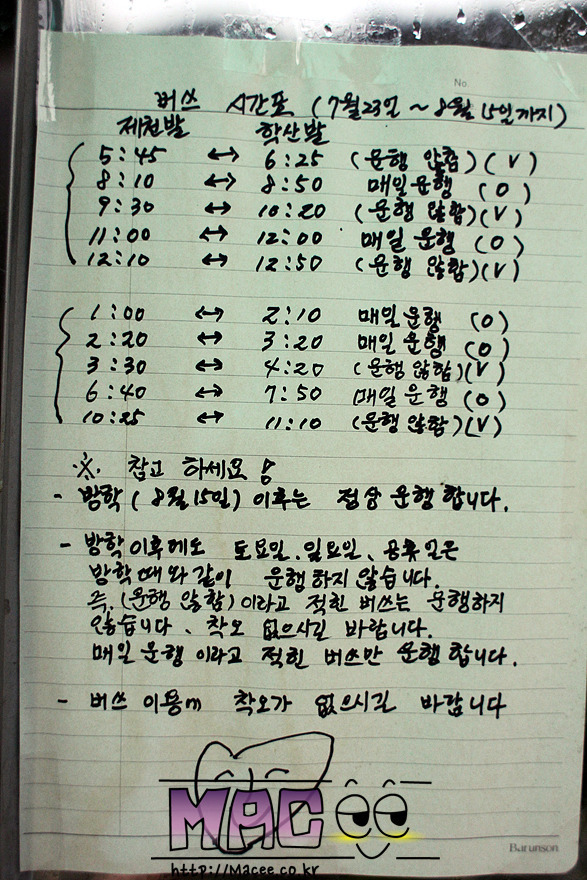 No.
버쓰 시간표 (7월23일 ~ 8월 15일까지)
제천발 학산발
5:45 ↔ 6:25 (운행 않함) (V)
8:10 ↔ 8:50 매일운행 (O)
9:30 ↔ 10:20 (운행 않함)(V)
11:00 ↔ 12:00 매일 운행 (O)
12:10 ↔ 12:50 (운행 않함)(V)
1:00 ↔ 2:10 매일운행 (O)
2:20 ↔ 3:20 매일 운행 (O)
3:30 ↔ 4:20 (운행 않함)(V)
6:40 ↔ 7:50 매일 운행 (O)
10:25 ↔ 11:10 (운행 않함)(V)
※. 참고 하세요!
- 방학 (8월15일) 이후는 정상 운행 합니다.
- 방학 이후에도 토요일, 일요일, 공휴일은
방학때와 같이 운행하지 않습니다.
즉, (운행 않함) 이라고 적힌 버쓰는 운행하지
않습니다, 착오 없으시길 바랍니다.
매일 운행 이라고 적힌 버쓰만 운행 합니다.
- 버쓰 이용에 착오가 없으시길 바랍니다
MACee
http://Macee.co.kr
Barunson